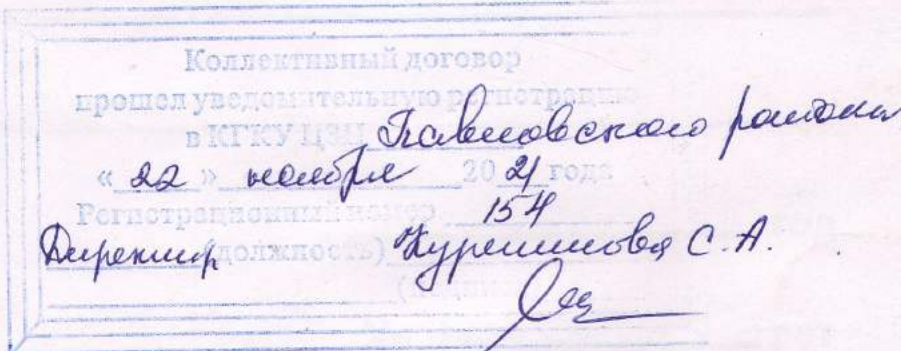 Коллективный договор
прошел уведомительную регистрацию
в КГКУ ЦЗН Павловского района
« 22 » ноября 20 21 года
Регистрационный номер 154
Директор (должность) С. А.
(подпись)